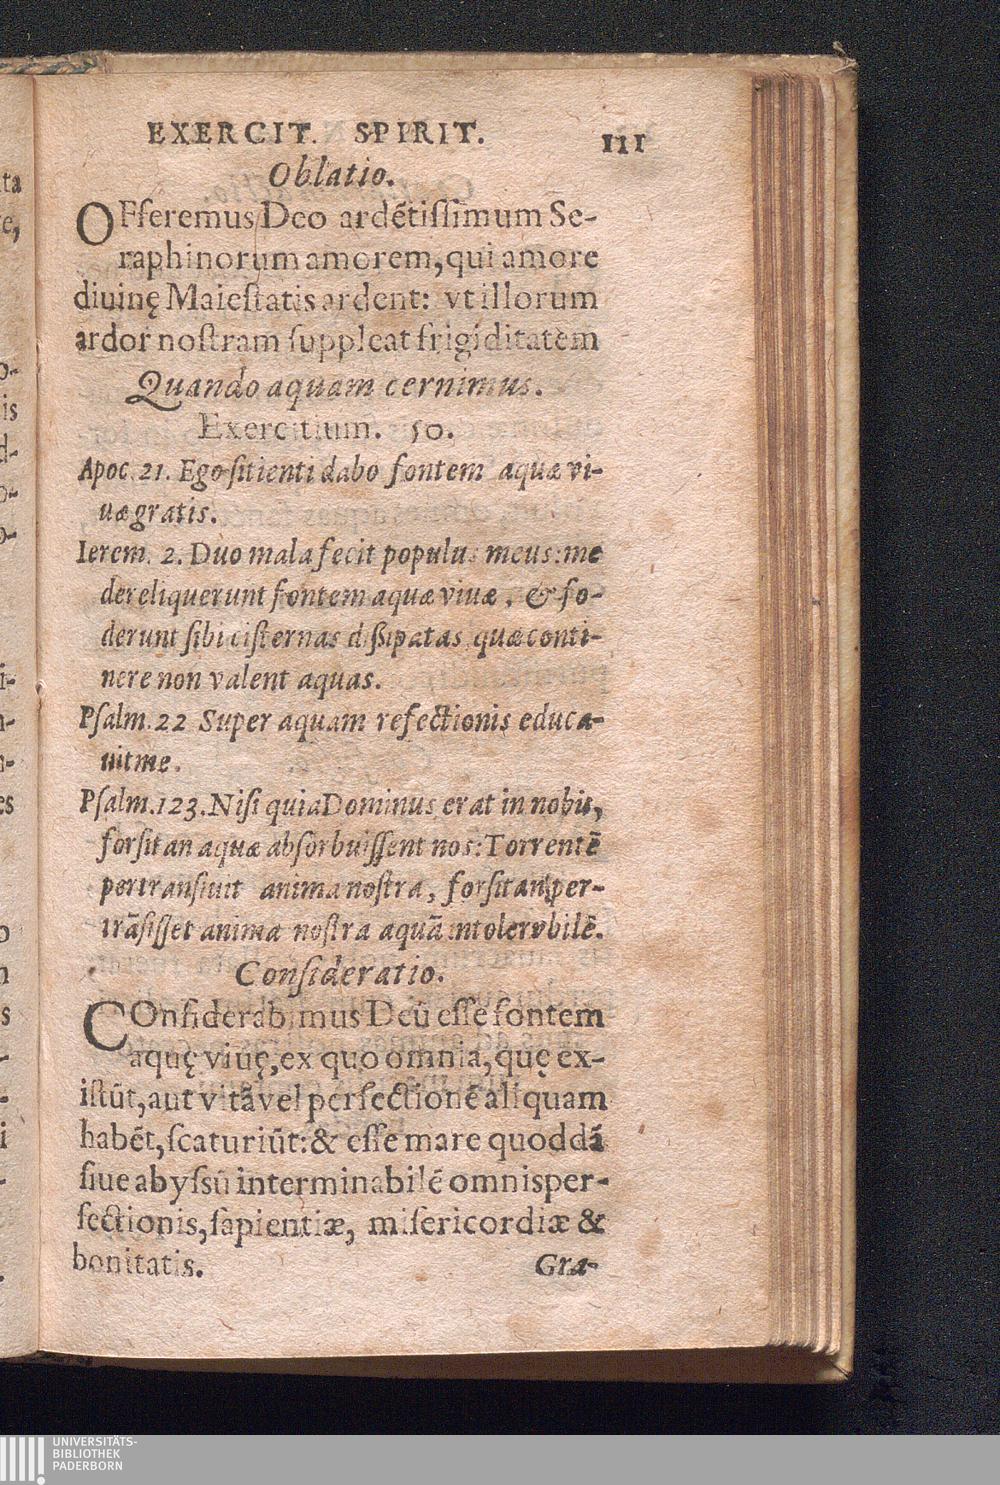 EXERCIT. SPIRIT. 111
Oblatio.
OFferemus Deo ardētiſſimum Se-
raphinorum amorem, qui amore
diuinę Maieſtatis ardent: vt illorum
ardor noſtram ſuppleat frigiditatem
Quando aquam cernimus.
Exercitium. 50.
Apoc. 21. Ego ſitienti dabo fontem aquæ vi-
uæ gratis.
Ierem. 2. Duo mala fecit populus meus: me
dereliquerunt fontem aquæ viuæ, & fo-
derunt ſibi ciſternas dißipatas quæ conti-
nere non valent aquas.
Pſalm. 22 Super aquam refectionis educa-
uit me.
Pſalm. 123. Niſi quia Dominus erat in nobis,
forſitan aquæ abſorbuiſſent nos: Torrentē
pertranſiuit anima noſtra, forſitan per-
trāſiſſet anima noſtra aquā intolerabilē.
Conſideratio.
COnſiderabimus Deū eſſe fontem
aquę viuę, ex quo omnia, quę ex-
iſtūt, aut vitā vel perfectionē aliquam
habēt, ſcaturiūt: & eſſe mare quoddā
ſiue abyſsū interminabilē omnis per-
fectionis, ſapientiæ, miſericordiæ &
bonitatis. Gra-
UNIVERSITÄTS-
BIBLIOTHEK
PADERBORN